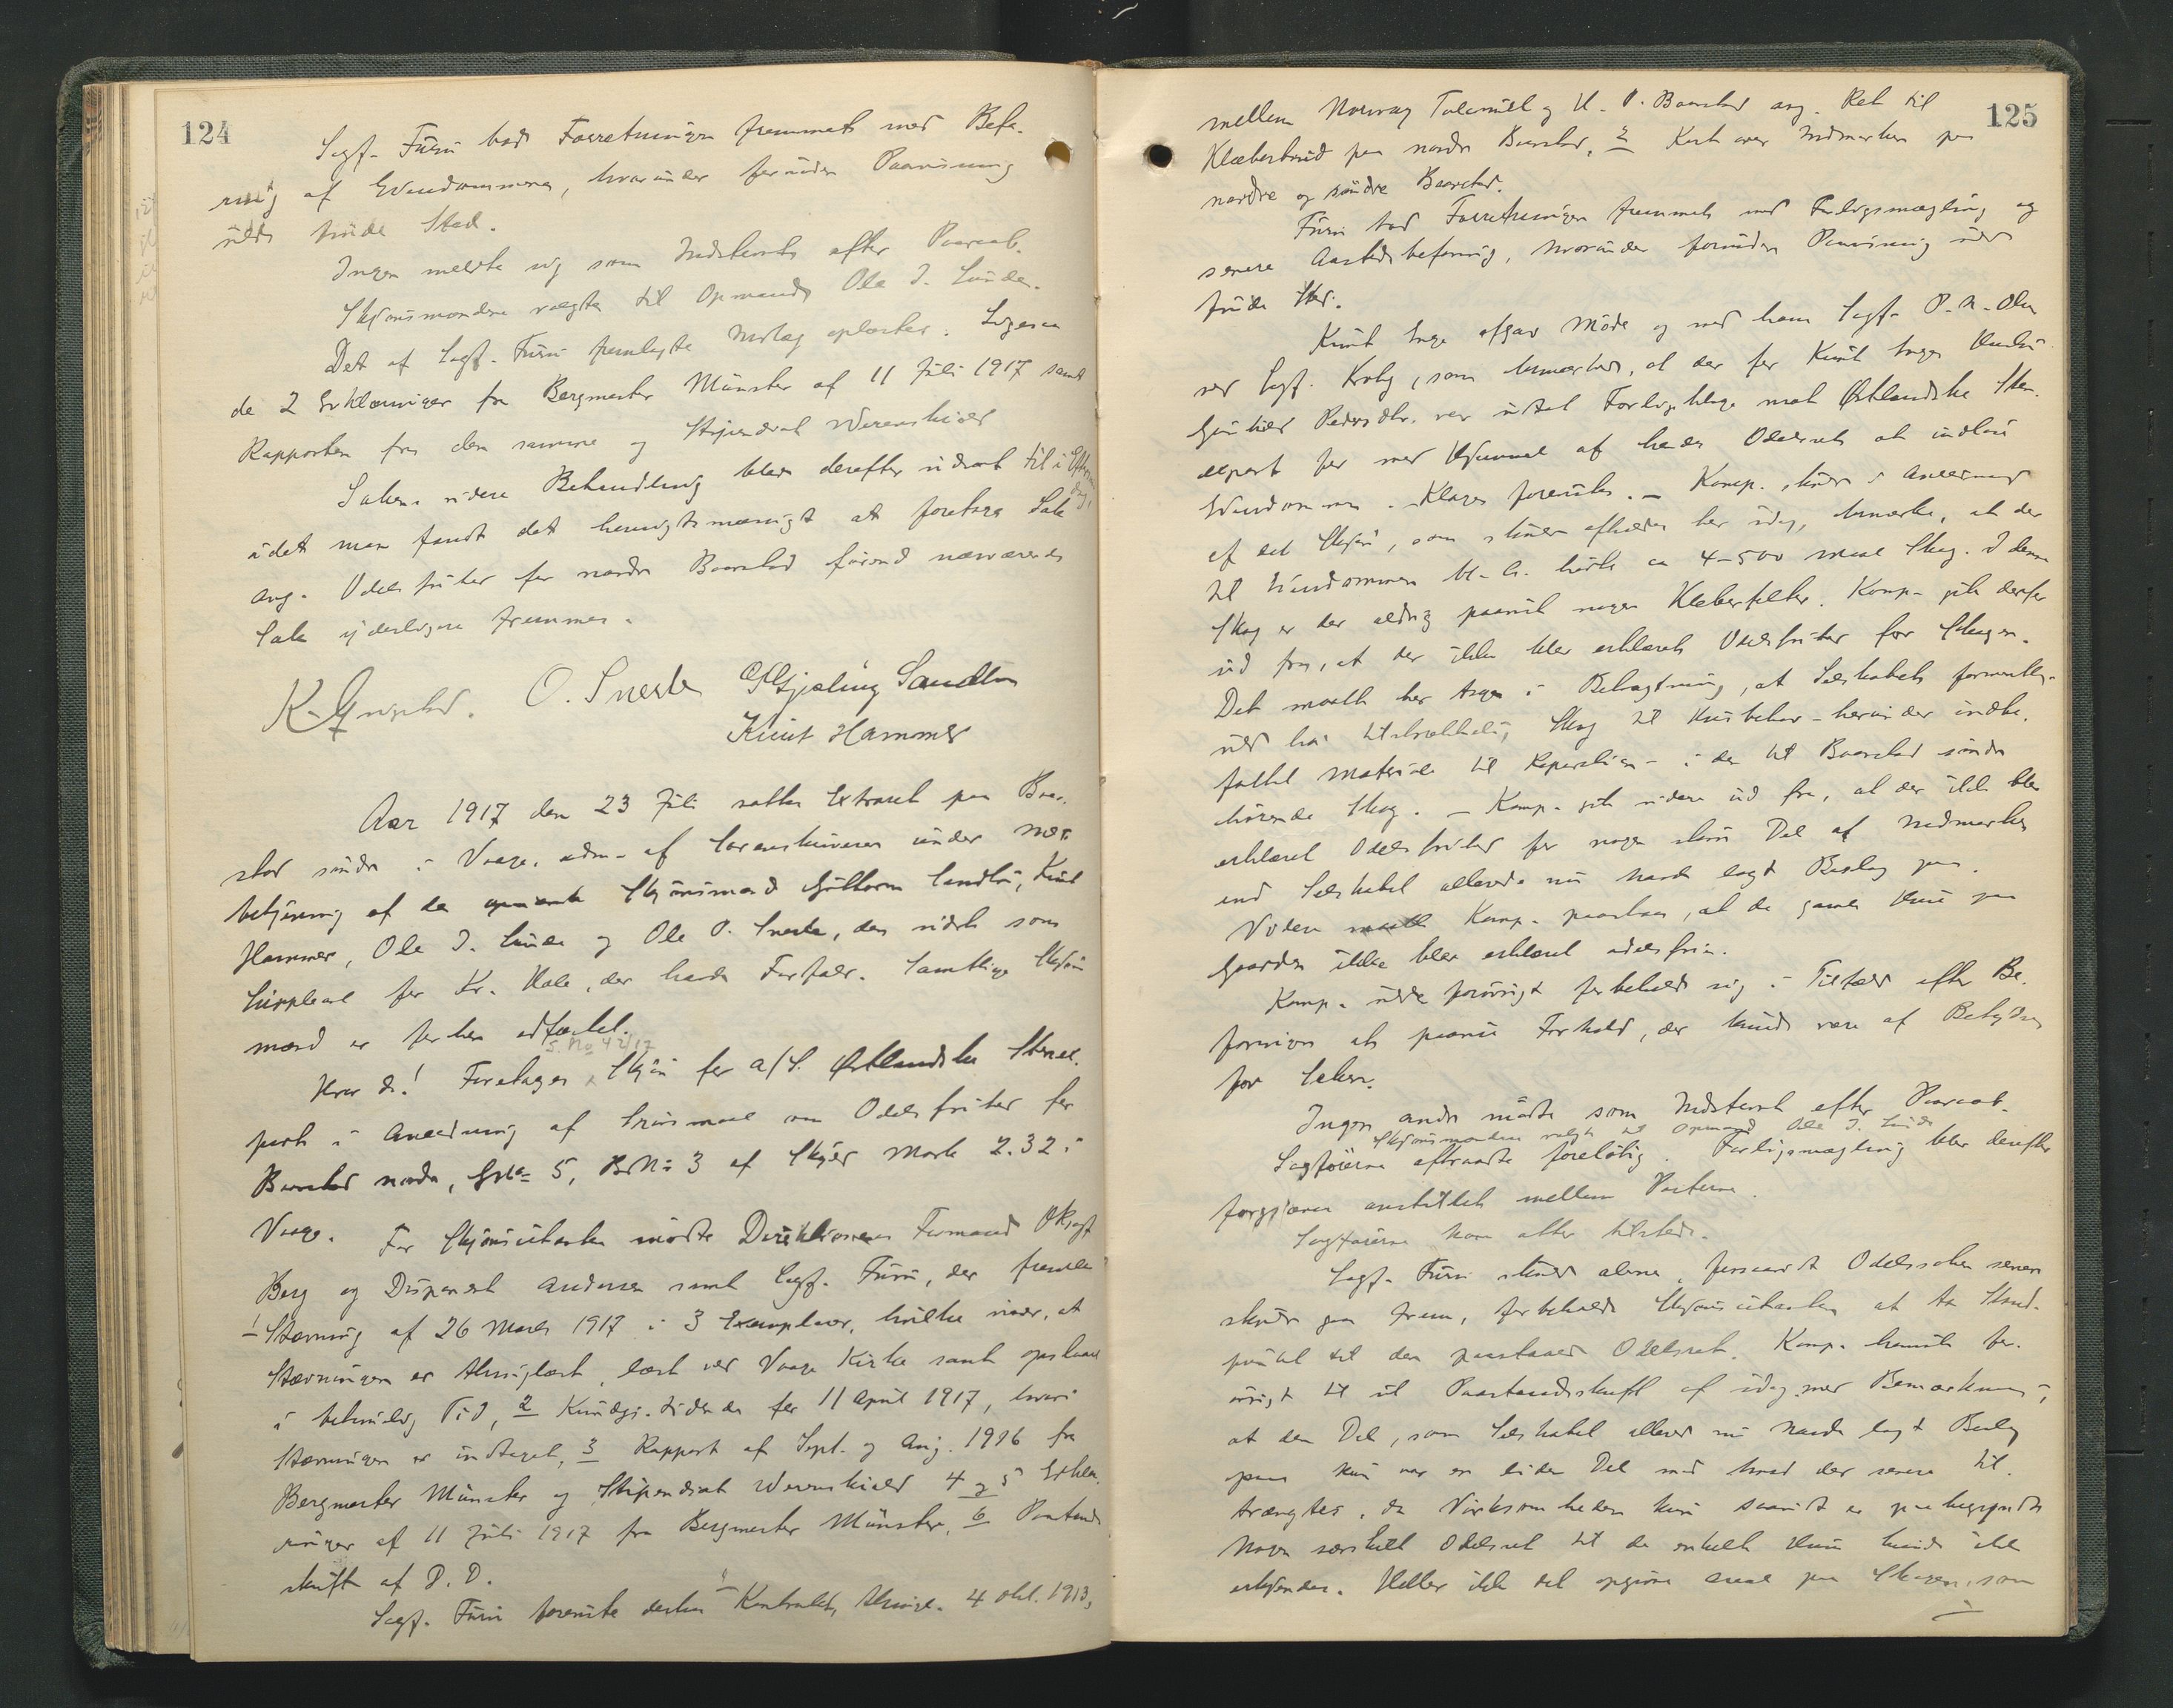 124
Sagf. Furu bad Forretningen fremmet med Befa-
ring af Eiendommene, hvorunder fornøden Paavisning
vilde finde Sted.
Ingen meldte sig som Indstevnt efter Paaraab.
Skjønsmændene valgte til Opmand Ole J. Lunde.
Det af Sagf. Furu fremlagte Indlæg oplæstes. Ligesaa
de 2 Erklæringer fra Bergmester Münster af 11 Juli 1917 samt
Rapporten fra den samme og Stipendiat Werenskiold
Sakens videre Behandling blev derefter udsat til i Efterm.
idag,
idet man fandt det hensigtsmæssigt at foretage Sak
ang. Odelsfrihet for nordre Baarstad førend nærværende
Sak yderligere fremmes.
O. Sneste G Gjæling Sandbu
Knut Hammer
Aar 1917 den 23 Juli sattes Extraret paa Baar-
stad søndre i Vaage, adm. af Sorenskriveren under Med-
betjening af de opnævnte Skjønsmænd Guttorm Sandbu, Knut
Hammer, Ole J. Lunde og Ole O. Sneste, den sidste som
Suppleant for Kr. Hole, der havde Forfald. Samtlige Skjøns
mænd er før her edfæstet.
S. No 42/17
Hvor da! Foretages Skjøn for A/S. Østlandske Stenex-
port i Anledning af Spørsmaal om Odelsfrihet for
Baarstad nordre, GNo 5, BrNo 3 af Skyld Mark 2.32 i
Vaage. For Skjønsutvirkeren mødte Direktionens Formand
Berg og Disponent Andersen samt Sagf. Furu, der fremla
1 Stævning af 26 Marts 1917 i 3 Exemplarer, hvilke viser, at
Stævningen er thinglæst, læst ved Vaage Kirke samt opslaaet
i behørig Tid, 2 Kundgj. tidende for 11 April 1917, hvori
Stævningen er indtaget, 3 Rapport af Sept. og Aug. 1916 fra
Bergmester Münster og Stipendiat Werenskiold 4 og 5 Erklæ-
ringer af 11 Juli 1917 fra Bergmester Münster, 6 Paastands
skrift af D. D.
Sagf. Furu foreviste derhos 1 Kontrakt, thinglæst 4 Okt. 1913,
125
mellem Norway Talcmill og H. P. Baarstad ang. Ret til
Kleberbrud paa nordre Baarstad, 2 Kart over Indmarken paa
nordre og søndre Baarstad.
Furu bad Forretningen fremmet med Forligsmægling og
senere Aastedsbefaring, hvorunder fornøden Paavisning vil
finde Sted.
Knut Inge afgav Møde og med ham Sagf. O. N. Olsen
ved Sagf. Kroby, som bemærket, at der for Knut Inges Hustru
Gunhild Pedersdtr. var uttat Forligsklage mot Østlandske Sten-
export for med Hjemmel af hendes Odelsret at indløse
Eiendommen. Klagen forevistes. – Komp. skulde i Anledning
af det Skjøn, som skulde afholdes her idag, bemærke, at der
til Eiendommen bl. a. hørte ca 4–500 Maal Skog. I denne
Skog er der aldrig paavist nogen Kleberfelter. Komp. gik derfor
ud fra, at der ikke blev erklæret Odelsfrihet for Skogen.
Det maatte her tages i Betragtning, at Selskabet formentlig
vil ha tilstrækkelig Skog til Husbehov – herunder indbe-
fattet Materialer til Reparation – i den til Baarstad søndre
hørende Skog. – Komp. gik videre ud fra, at der ikke blev
erklæret Odelsfrihet for nogen større Del af Indmarken
end Selskabet allerede nu havde lagt Beslag paa.
Videre maatte Komp. paastaa, at de gamle Huse paa
Gaarden ikke blev erklæret odelsfrie.
Komp. vilde forøvrigt forbeholde sig i Tilfælde efter Be-
faringen at paavise Forhold, der kunde være af Betydning
for Saken.
Ingen andre mødte som Indstevnt efter Paaraab.
Skjønsmændene valgte til Opmand Ole J. Lunde
Sagførerne aftraadte foreløbig. Forligsmægling blev derefter
forgjæves anstillet mellem Parterne.
Sagførerne kom atter tilstede.
Sagf. Furu skulde alene, forsaavidt Odelssaken senere
skulde gaa frem, forbeholde Skjønsutvirkeren at ta Stand-
punkt til den paastaaede Odelsret. Komp. henviste for-
øvrigt til sit Paastandsskrift af idag med Bemærkning,
at den Del, som Selskabet allerede nu havde lagt Beslag
paa kun var en liden Del mot hvad der senere til-
trængtes, da Virksomheden kun saavidt er paabegyndt
Nogen særskilt Odelsret til de enkelte Huse kunde ikke
erkjendes. Heller ikke det opgivne Areal paa Skogen, som